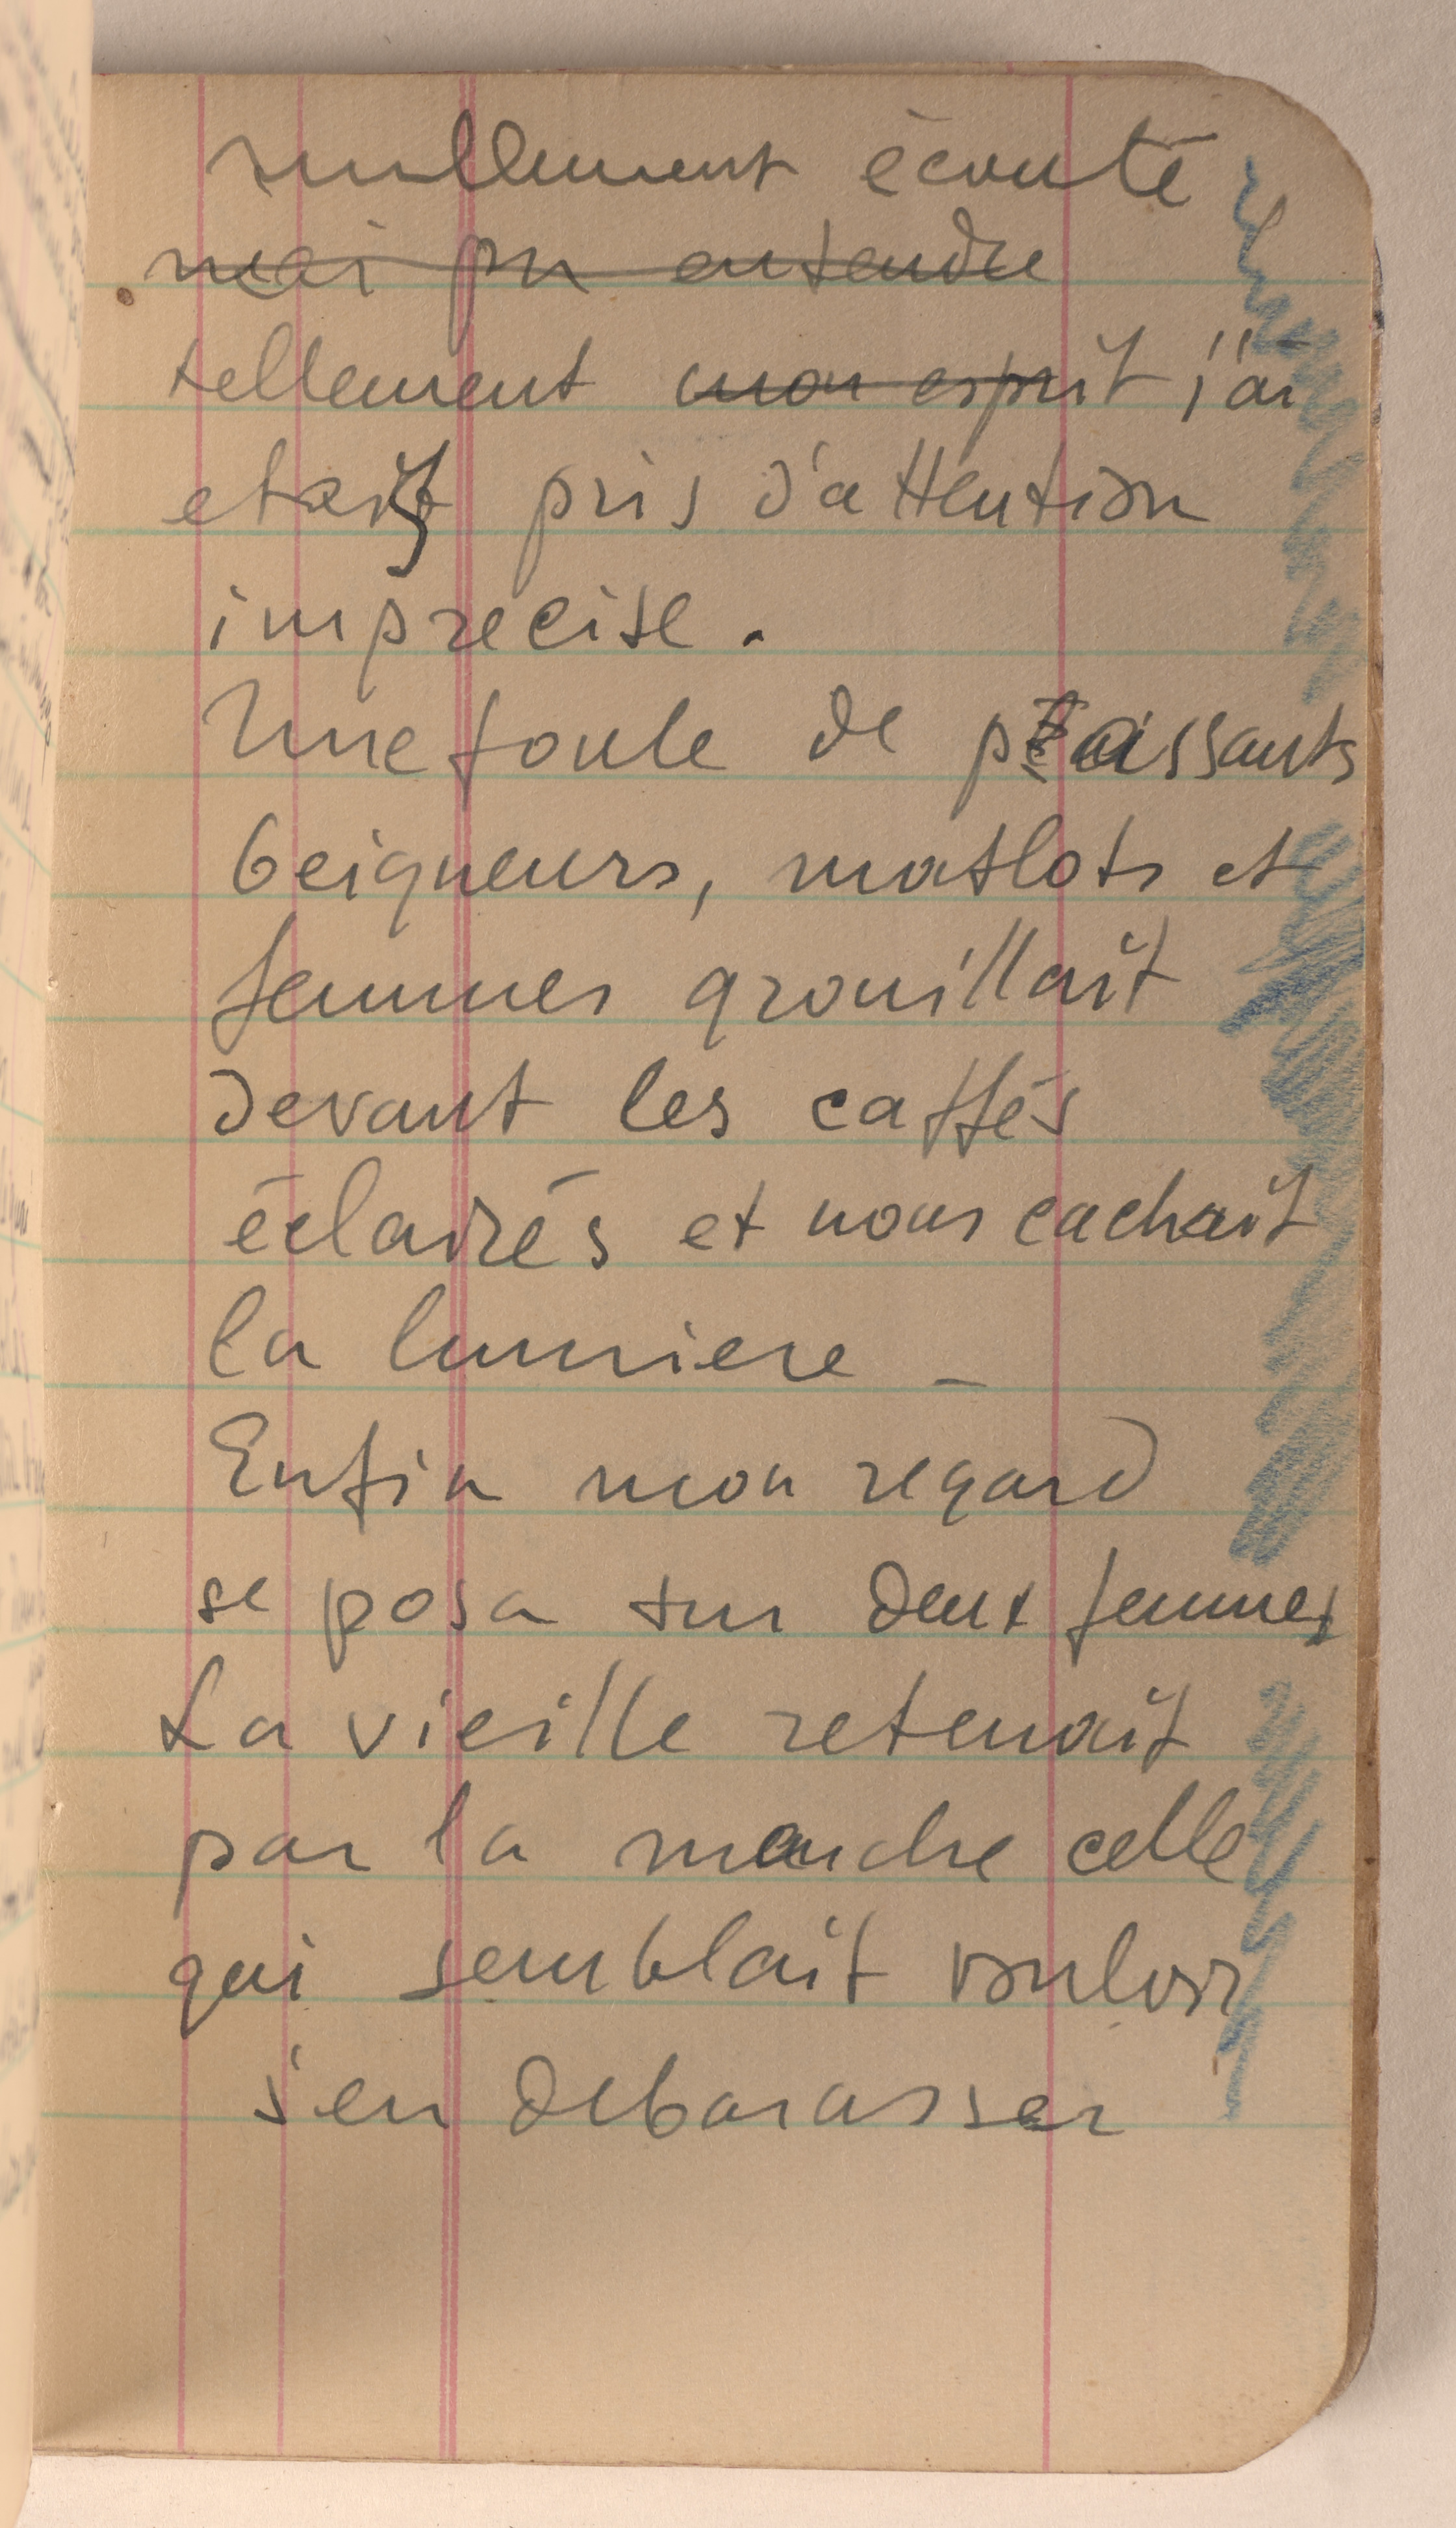 nullement écouté
mai pu entendre
tellement mon esprit j'ai
etais pris d'attention
imprecise.
Une foule de
beigneurs, matlots et
femmes grouillait
devant les caffés
éclairés et nous cachait
la lumiere _
Enfin mon regard
se posa sur deux femmes
La vieille retenait
par la manche celle
qui semblait vouloir
s'en debarasser